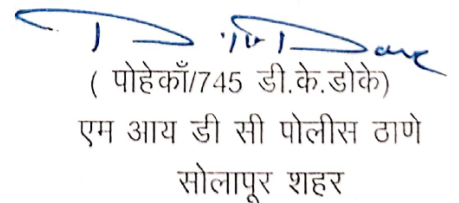 ( पोहेकाँ/745 डी.के.डोके)
एम आय डी सी पोलीस ठाणे
सोलापूर शहर